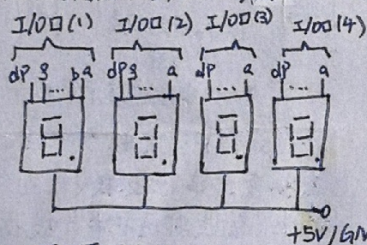 I/O口(1) I/O口(2) I/O口(3) I/O口(4)
dp g ... b a dp g ... a dp ... a dp ... a
8. 8. 8. 8.
+5V/GN